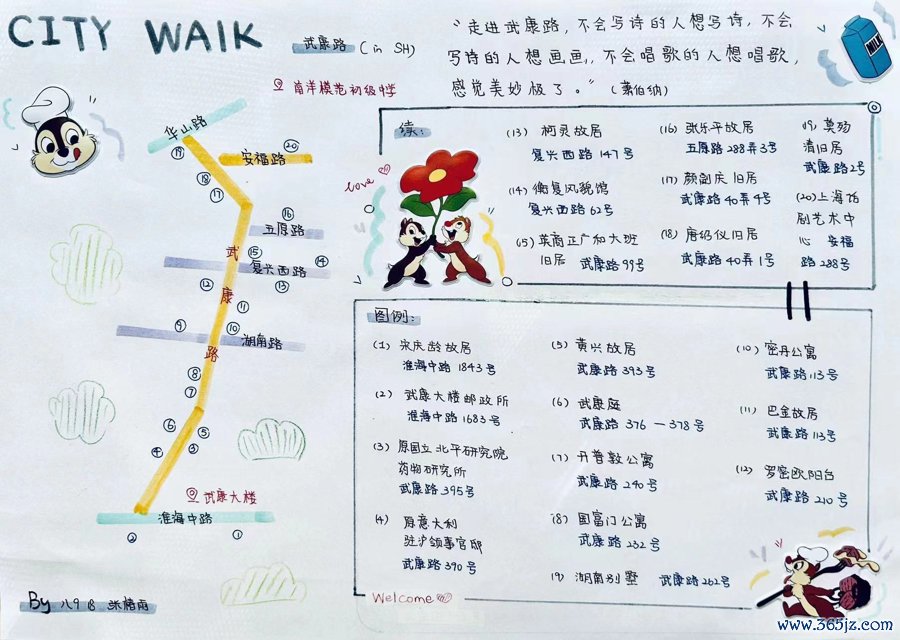 CITY WALK
武康路 (in SH)
"走进武康路,不会写诗的人想写诗,不会
写诗的人想画画,不会唱歌的人想唱歌,
感觉美妙极了。" (萧伯纳)
MILK
南洋模范初级中学
华山路
⑲
⑳
安福路
⑱
⑰
⑯
五原路
武
⑮
复兴西路
⑭
⑬
⑫
康
⑪
⑨
⑩
湖南路
路
⑧
⑦
⑥
⑤
④
③
武康大楼
淮海中路
②
①
By 八9B
love
续:
(13) 柯灵故居
复兴西路 147号
(14) 衡复风貌馆
复兴西路 62号
(15) 英商正广和大班
旧居 武康路 99号
(16) 张乐平故居
五原路 288弄3号
(17) 颜副庆旧居
武康路 40弄4号
(18) 唐绍仪旧居
武康路 40弄1号
(19) 莫觞
清旧居
武康路 2号
(20) 上海话
剧艺术中
心 安福
路 288号
图例:
(1) 宋庆龄故居
淮海中路 1843号
(2) 武康大楼邮政所
淮海中路 1683号
(3) 原国立北平研究院
药物研究所
武康路 395号
(4) 原意大利
驻沪领事官邸
武康路 390号
(5) 黄兴故居
武康路 393号
(6) 武康庭
武康路 376 — 378号
(7) 开普敦公寓
武康路 240号
(8) 国富门公寓
武康路 232号
(9) 湖南别墅 武康路 262号
(10) 密丹公寓
武康路 113号
(11) 巴金故居
武康路 113号
(12) 罗密欧阳台
武康路 210号
Welcome
www.365jz.com